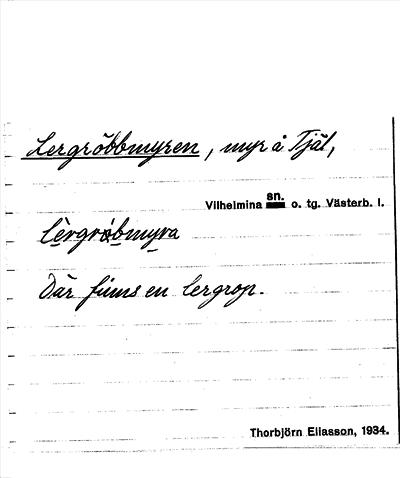 Lergröbbmyren, myr å Tjäl,
Vilhelmina sn. o. tg. Västerb. l.
lèrgröbmyra
Där finns en lergrop.
Thorbjörn Eliasson, 1934.